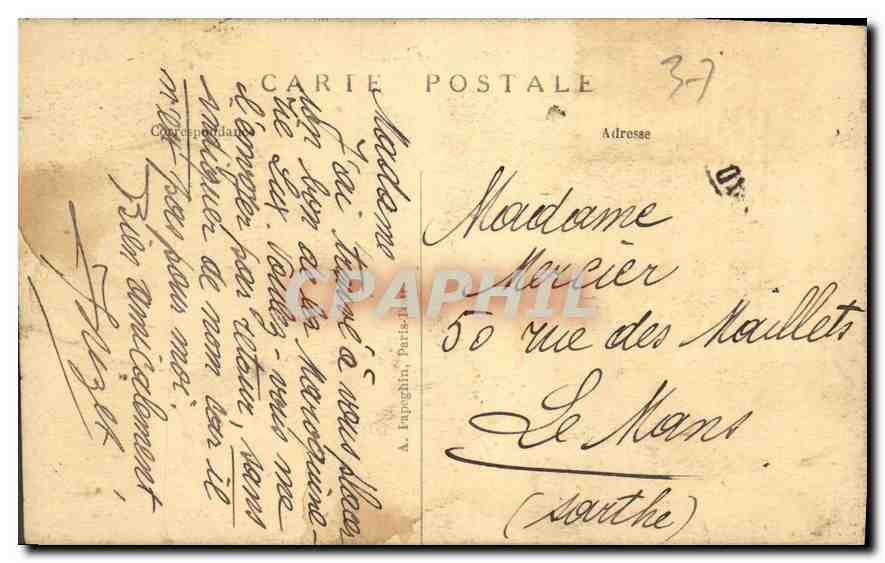 CARTE POSTALE
37
Correspondance
Adresse
Madame
J'ai trouvé à vous placer
un bon de la Maroquine-
rie Lux. Voulez-vous me
l'envoyer par retour, sans
indiquer de nom car il
n'est pas pour moi.
Bien amicalement,
A. Papeghin, Paris-
Madame
Mercier
50 rue des Maillets
Le Mans
(Sarthe)
CPAPHIL